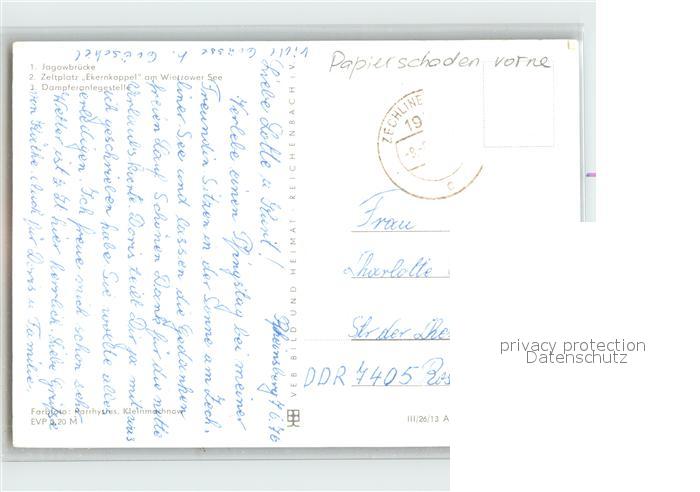 Papierschaden vorne
1. Jagowbrücke
2. Zeltplatz „Ekernkoppel" am Wietzower See
3. Dampferanlegestelle
Viele Grüsse
Rheinsberg 7.6.76
Liebe Lotte u. Kurt!
Verlebe einen Pfingsttag bei meiner
Freundin. Sitzen in der Sonne am Zech-
liner See und lassen die Gedanken
freien Lauf. Schönen Dank für die nette
Urlaubskarte. Doris teilt Dir ja mit was
ich geschrieben habe. Sie wollte alles
erledigen. Ich freue mich schon sehr.
Wetter ist z. Zt. hier herrlich. Liebe Grüße
von Käthe. Auch für Doris u. Familie.
VEB BILD UND HEIMAT · REICHENBACH I. V.
ZECHLINE
19
Frau
Charlotte
Str der
DDR 7405
privacy protection
Datenschutz
Farbfoto: Parrhysius, Kleinmachnow
EVP 0,20 M
III/26/13 A